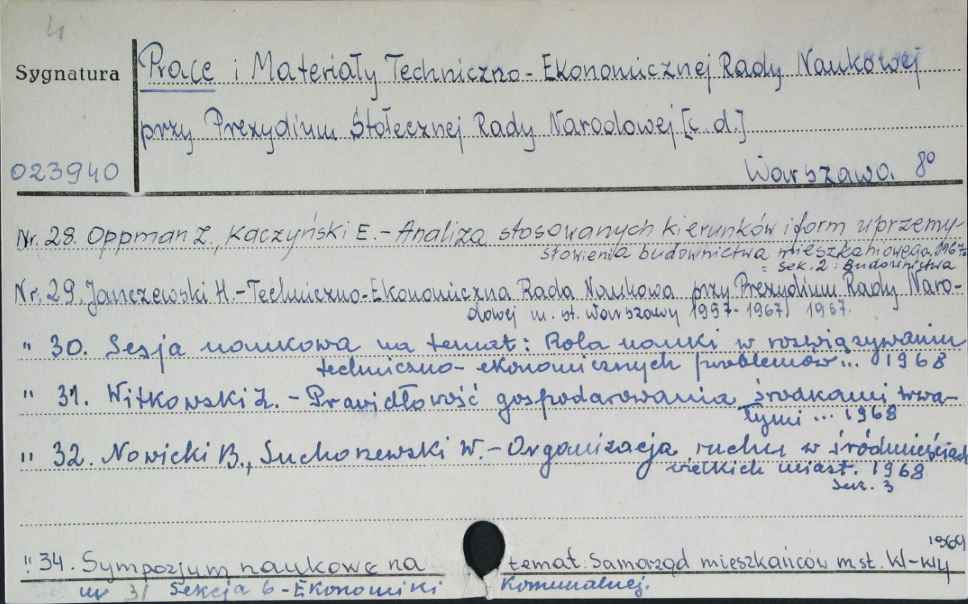 4
Sygnatura
Prace i Materiały Techniczno-Ekonomicznej Rady Naukowej
przy Prezydium Stołecznej Rady Narodowej [c.d.]
023940
Warszawa. 8°
Nr. 28. Oppman Z., Kaczyński E. - Analiza stosowanych kierunków i form uprzemy-
słowienia budownictwa mieszkaniowego, 1967.
= Sek. 2 : Budownictwa
Nr. 29. Janczewski H. - Techniczno-Ekonomiczna Rada Naukowa przy Prezydium Rady Naro-
dowej m. st. Warszawy 1957-1967) 1967.
" 30. Sesja naukowa na temat: Rola nauki w rozwiązywaniu
techniczno-ekonomicznych problemów... 1968
" 31. Witkowski Z. - Prawidłowość gospodarowania środkami trwa-
łymi ... 1968
" 32. Nowicki B., Suchorzewski W. - Organizacja ruchu w śródmieściach
wielkich miast. 1968
Sek. 3
1969
" 34. Sympozjum naukowe na temat Samorząd mieszkańców m st. W-wy
nr 3/ Sekcja 6 - Ekonomiki Komunalnej.